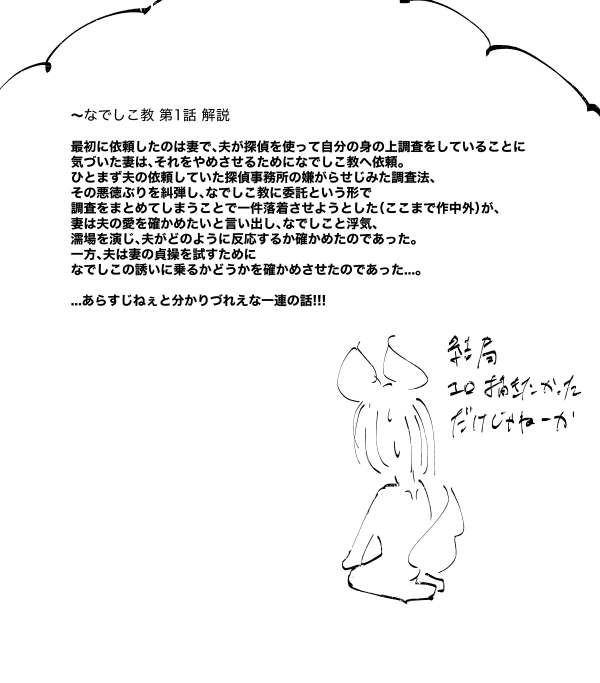 ～なでしこ教 第1話 解説
最初に依頼したのは妻で、夫が探偵を使って自分の身の上調査をしていることに
気づいた妻は、それをやめさせるためになでしこ教へ依頼。
ひとまず夫の依頼していた探偵事務所の嫌がらせじみた調査法、
その悪徳ぶりを糾弾し、なでしこ教に委託という形で
調査をまとめてしまうことで一件落着させようとした（ここまで作中外）が、
妻は夫の愛を確かめたいと言い出し、なでしこと浮気、
濡場を演じ、夫がどのように反応するか確かめたのであった。
一方、夫は妻の貞操を試すために
なでしこの誘いに乗るかどうかを確かめさせたのであった…。
…あらすじねぇと分かりづれえな一連の話!!!
結局
エロ描きたかった
だけじゃねーか